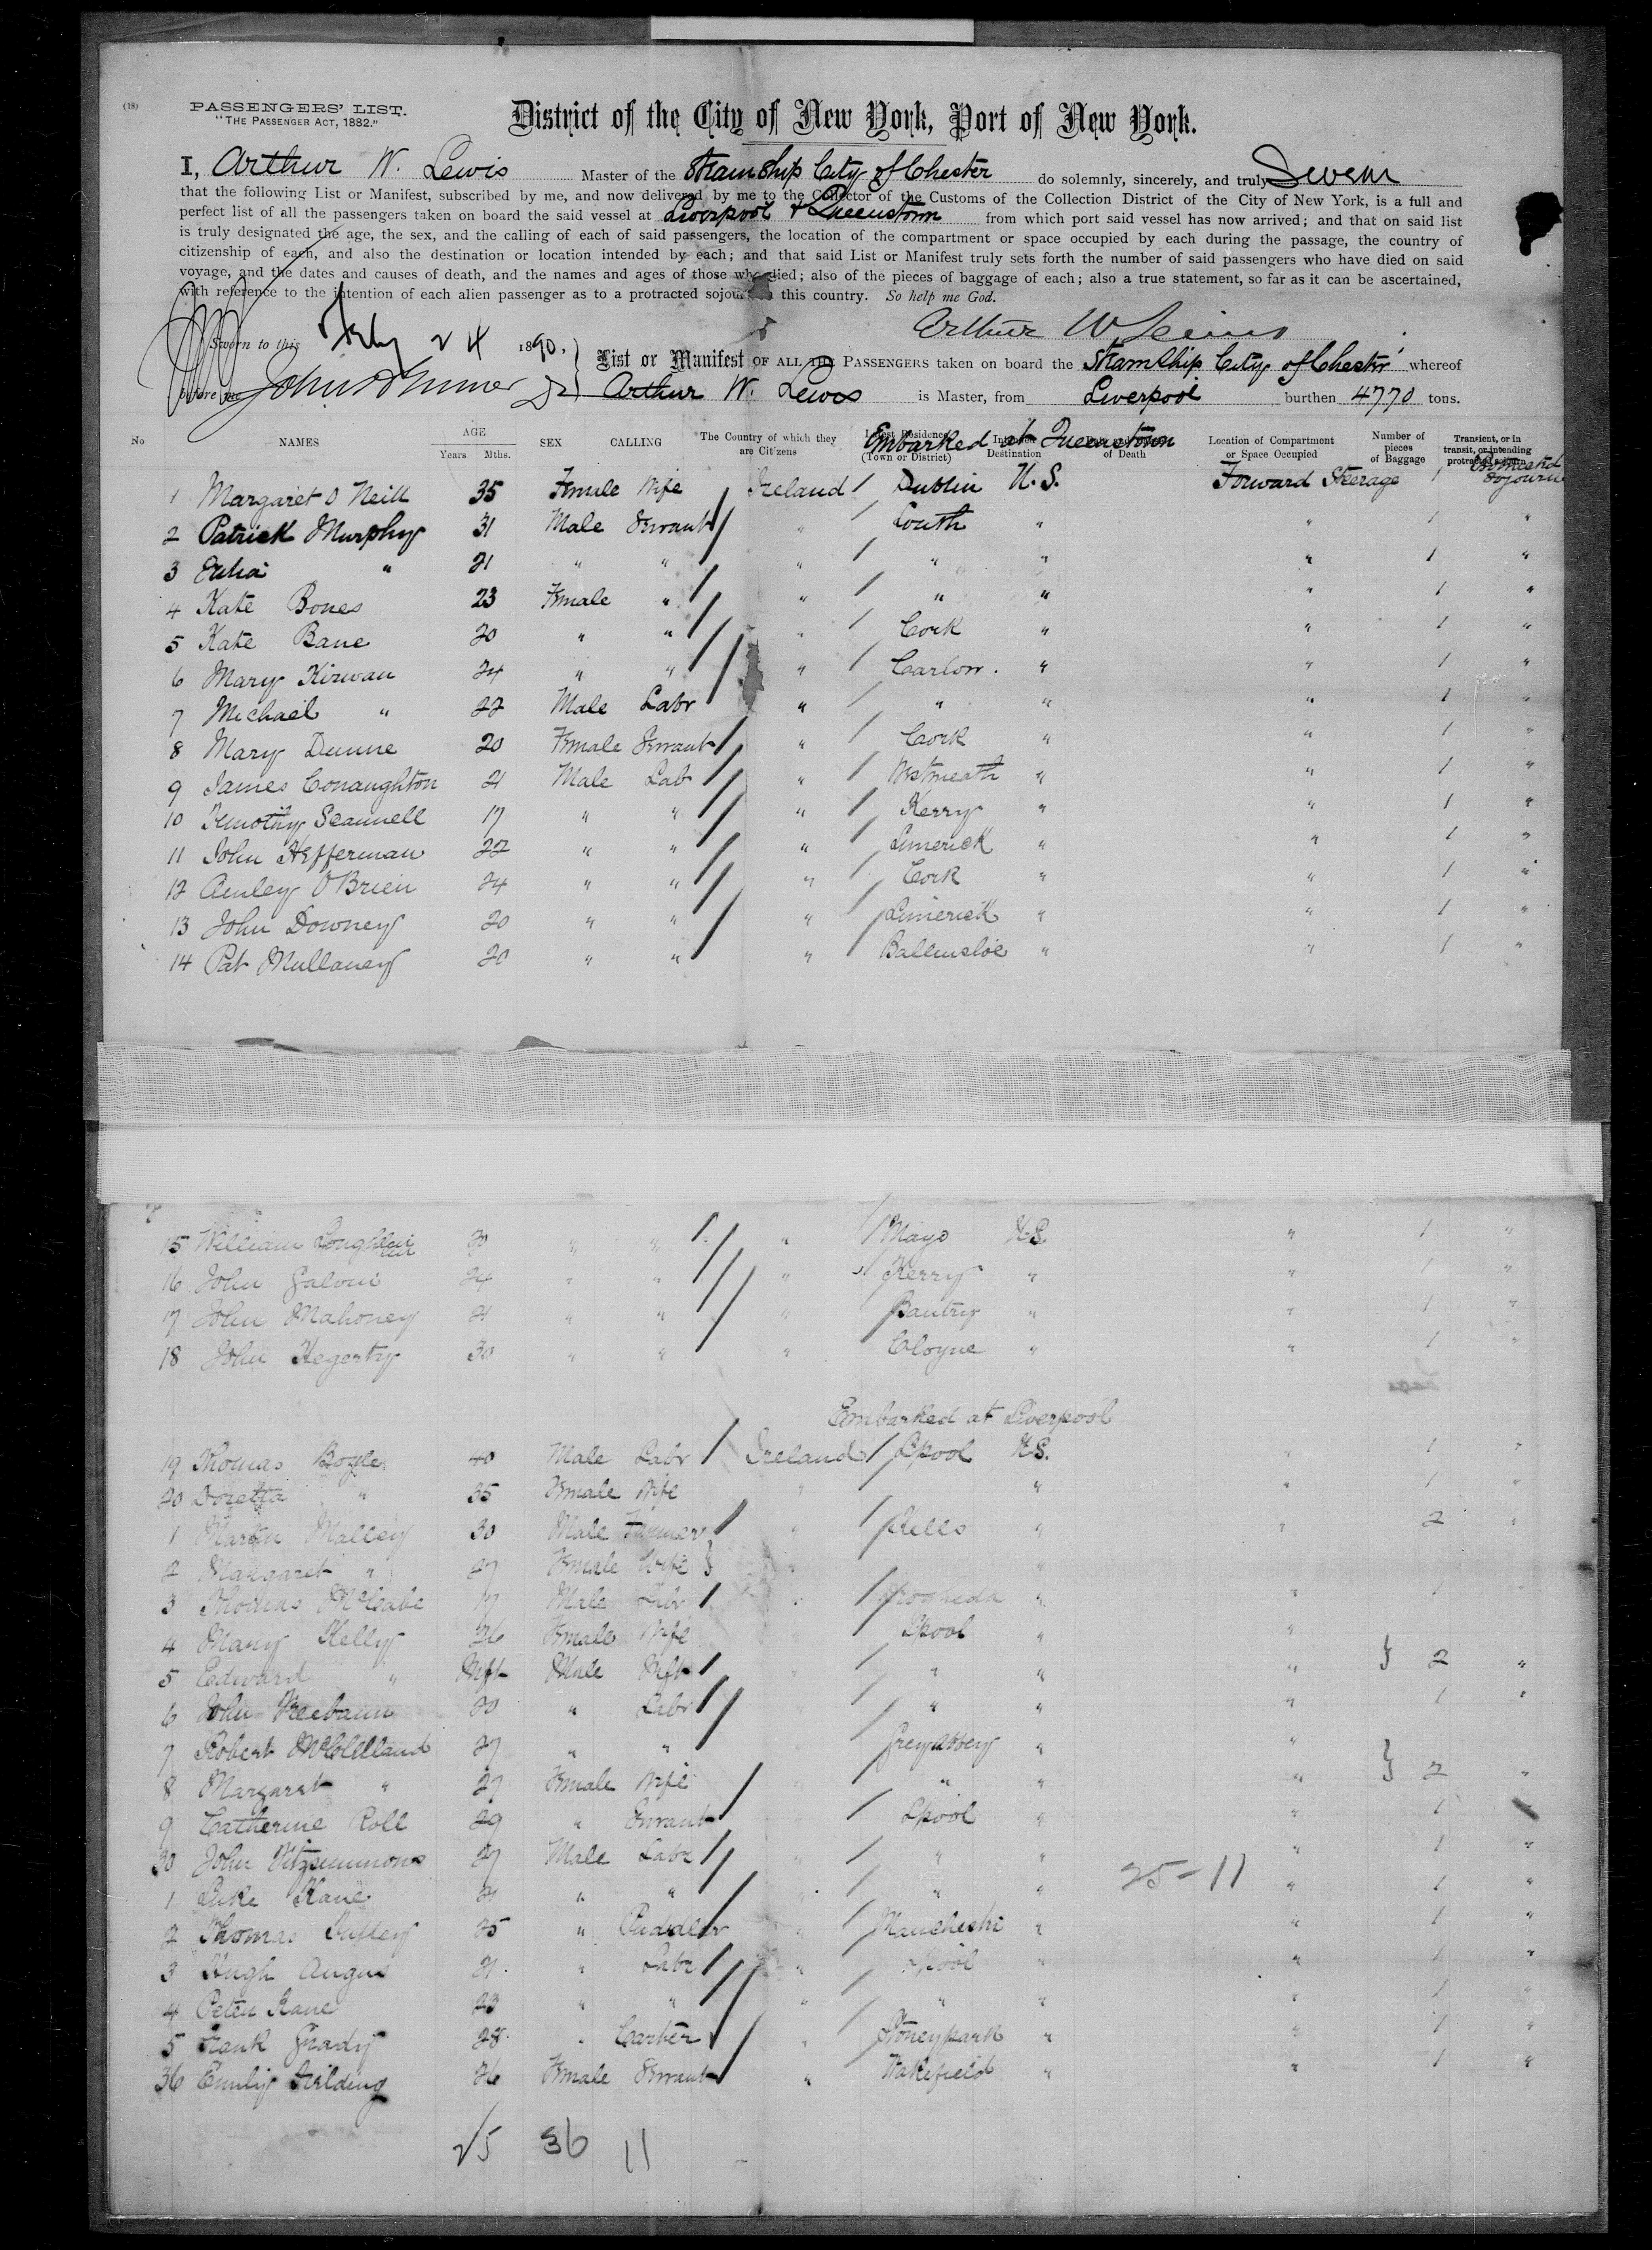 (18)
PASSENGERS' LIST.
"THE PASSENGER ACT, 1882."
District of the City of New York, Port of New York.
I, Arthur W. Lewis Master of the Steam Ship City of Chester do solemnly, sincerely, and truly Swear
that the following List or Manifest, subscribed by me, and now delivered by me to the Collector of the Customs of the Collection District of the City of New York, is a full and
perfect list of all the passengers taken on board the said vessel at Liverpool & Queenstown from which port said vessel has now arrived; and that on said list
is truly designated the age, the sex, and the calling of each of said passengers, the location of the compartment or space occupied by each during the passage, the country of
citizenship of each, and also the destination or location intended by each; and that said List or Manifest truly sets forth the number of said passengers who have died on said
voyage, and the dates and causes of death, and the names and ages of those who died; also of the pieces of baggage of each; also a true statement, so far as it can be ascertained,
with reference to the intention of each alien passenger as to a protracted sojourn this country. So help me God.
Arthur W Lewis
Sworn to this 24 1890,
List or Manifest OF ALL THE PASSENGERS taken on board the Steam Ship City of Chester whereof
before me Arthur W. Lewis is Master, from Liverpool burthen 4770 tons.
No NAMES AGE Years Mths. SEX CALLING The Country of which they are Citizens Last Residence (Town or District) Intended Destination of Death Location of Compartment or Space Occupied Number of pieces of Baggage Transient, or in transit, or intending protracted sojourn
Embarked at Queenstown
1 Margaret O Neill 35 Female Wife Ireland Dublin U.S. Forward Steerage 1 Protracted Sojourn
2 Patrick Murphy 31 Male Servant " Louth " " 1 "
3 " 21 " " " " " " 1 "
4 Kate Bones 23 Female " " " " " 1 "
5 Kate Bane 20 " " " Cork " " 1 "
6 Mary Kirwan 24 " " " Carlow. " " 1 "
7 Michael " 22 Male Labr " " " " 1 "
8 Mary Dunne 20 Female Servant " Cork " " 1 "
9 James Conaughton 21 Male Lab " Westmeath " " 1 "
10 Timothy Scannell 17 " " " Kerry " " 1 "
11 John Hefferman 22 " " " Limerick " " 1 "
12 O'Brien 24 " " " Cork " " 1 "
13 John Downey 20 " " " Limerick " " 1 "
14 Pat Mullaney 20 " " " Ballinsloe " " 1 "
15 William 20 " " " Mayo U.S. " 1 "
16 John Galvin 24 " " " Kerry " " 1 "
17 John Mahoney 21 " " " Bantry " " 1 "
18 John Hegerty 30 " " " Cloyne " " 1 "
Embarked at Liverpool
19 Thomas Boyle 40 Male Labr Ireland Lpool U.S. " 1 "
20 Doretta " 35 Female Wife " " " 1 "
1 Martin Malley 30 Male Farmer " Kells " " 2 "
2 Margaret " 27 Female Wife " "
3 Thomas McCabe 17 Male Labr " Drogheda " " 1 "
4 Mary Kelly 26 Female Wife Lpool " "
5 Edward " Inft Male Inft " " " " } 2 "
6 John 20 " Labr " " " 1 "
7 Robert McClelland 27 " " Greyabbey " "
8 Margaret " 27 Female Wife " " " } 2 "
9 Catherine Roll 29 " Servant Lpool " " 1
30 John Fitzsimmons 27 Male Labr " " " " 1 "
1 Luke Kane 21 " " " " " 1 "
25-11
2 Thomas 25 " Puddler " " " 1 "
3 Hugh Angus 21 " Labr " Lpool " " 1 "
4 Peter Kane 23 " " " " " " 1 "
5 Frank Grady 28 " Carter " Stoneypark " " 1 "
36 Emily Fielding 26 Female Servant " Wakefield " " 1 "
25 36 11